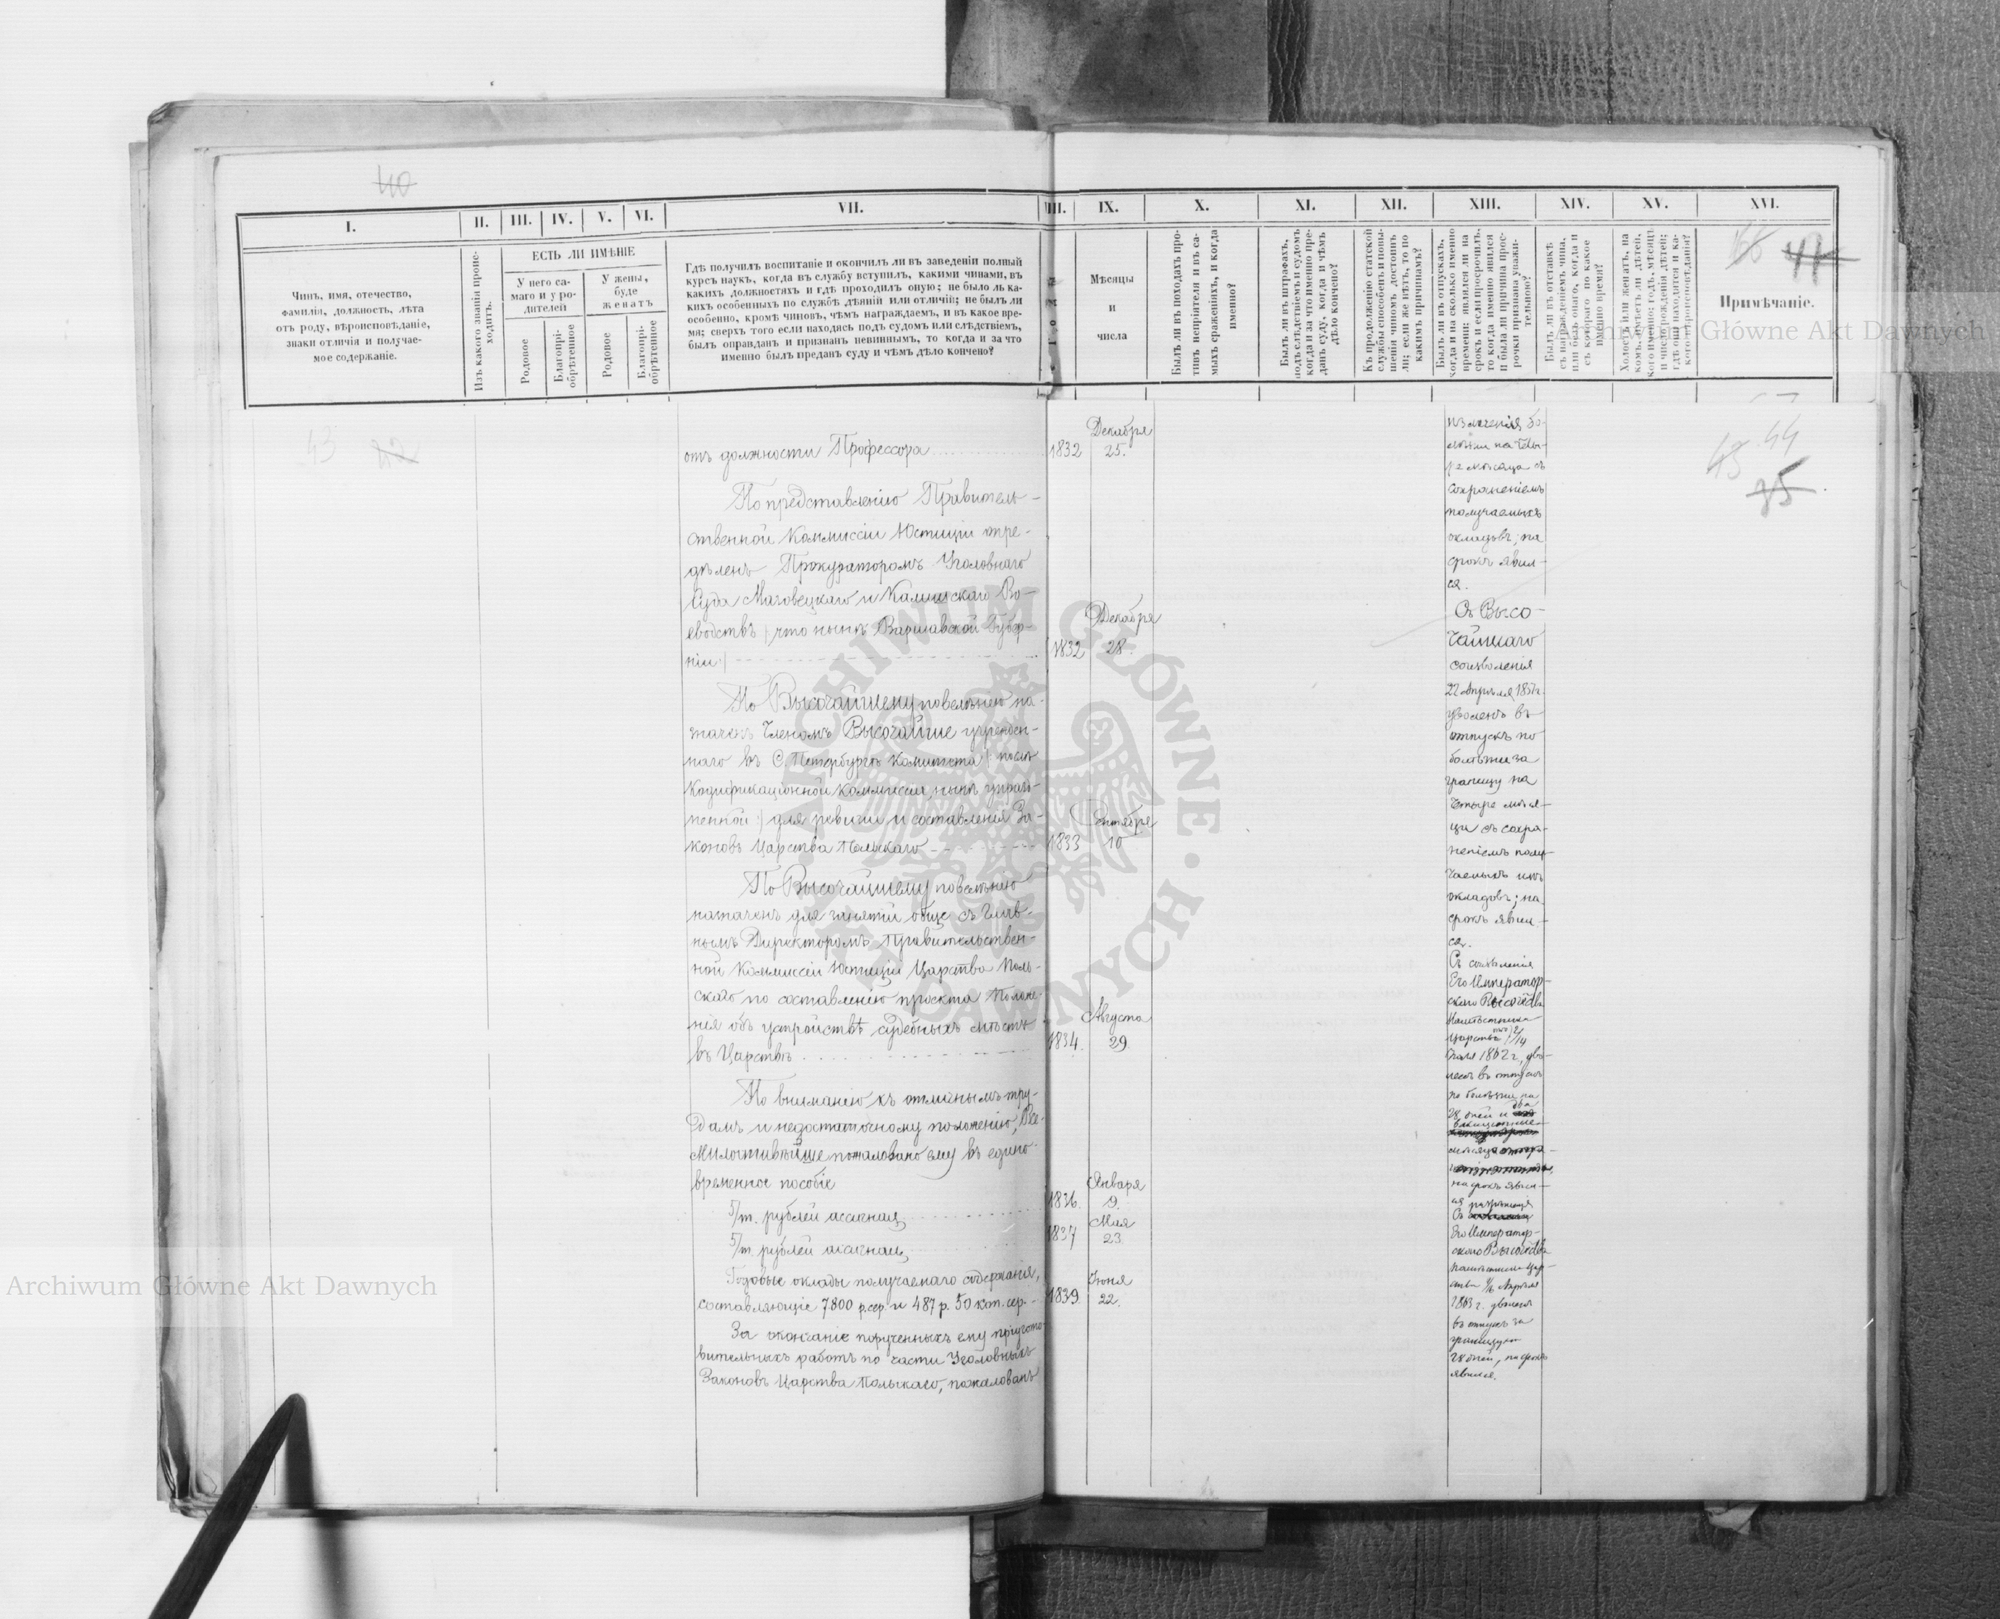 40
I.
II.
III.
IV.
V.
VI.
VII.
VIII.
IX.
X.
XI.
XII.
XIII.
XIV.
XV.
XVI.
Чинъ, имя, отечество,
фамилія, должность, лѣта
отъ роду, вѣроисповѣданіе,
знаки отличія и получае-
мое содержаніе.
Изъ какого званія проис-
ходитъ.
ЕСТЬ ЛИ ИМѢНІЕ
У него са-
маго и у ро-
дителей
У жены,
буде
женатъ
Родовое
Благопрі-
обрѣтенное
Родовое
Благопрі-
обрѣтенное
Гдѣ получилъ воспитаніе и окончилъ ли въ заведеніи полный
курсъ наукъ, когда въ службу вступилъ, какими чинами, въ
какихъ должностяхъ и гдѣ проходилъ оную; не было ль ка-
кихъ особенныхъ по службѣ дѣяній или отличій; не былъ ли
особенно, кромѣ чиновъ, чѣмъ награждаемъ, и въ какое вре-
мя; сверхъ того если находясь подъ судомъ или слѣдствіемъ,
былъ оправданъ и признанъ невиннымъ, то когда и за что
именно былъ преданъ суду и чѣмъ дѣло кончено?
Мѣсяцы
и
числа
Былъ ли въ походахъ про-
тивъ непріятеля и въ са-
мыхъ сраженіяхъ, и когда
именно?
Былъ ли въ штрафахъ,
подъ слѣдствіемъ и судомъ
когда и за что именно пре-
данъ суду, когда и чѣмъ
дѣло кончено?
Къ продолженію статской
службы способенъ и повы-
шенія чиномъ достоинъ
ли; если же нѣтъ, то по
какимъ причинамъ?
Былъ ли въ отпускахъ,
когда и на сколько именно
времени; явился ли на
срокъ и если просрочилъ,
то когда именно явился
и была ли причина прос-
рочки признана уважи-
тельною?
Былъ ли въ отставкѣ
съ награжденіемъ чина,
или безъ онаго, когда и
съ котораго по какое
именно время?
Холостъ или женатъ, на
комъ, имѣетъ ли дѣтей,
кого именно; годъ, мѣсяцъ
и число рожденія дѣтей;
гдѣ они находятся и ка-
кого вѣроисповѣданія?
Примѣчаніе.
43
44
отъ должности Профессора
1832
Декабря
25.
По представленію Правитель-
ственной Коммиссіи Юстиціи опре-
дѣленъ Прокураторомъ Уголовнаго
Суда Мазовецкаго и Калишскаго Во-
еводствъ /: что нынѣ Варшавской Губер-
ніи :/
1832
Декабря
28.
По Высочайшему повелѣнію на-
значенъ Членомъ Высочайше учрежден-
наго въ С. Петербургѣ Комитета /: послѣ
Кодификаціонной Коммиссіи, нынѣ упразд-
ненной :/ для ревизіи и составленія За-
коновъ Царства Польскаго
1833
Сентября
10
По Высочайшему повелѣнію
назначенъ для занятій обще съ Глав-
нымъ Директоромъ Правительствен-
ной Коммиссіи Юстиціи Царства Поль-
скаго по составленію проэкта Положе-
нія объ устройствѣ судебныхъ мѣстъ
въ Царствѣ
1834.
Августа
29.
По вниманію къ отличнымъ тру-
дамъ и недостаточному положенію, Все-
Милостивѣйше пожаловано ему въ едино-
временное пособіе
5/т. рублей ассигнац.
1836.
Января
9.
5/т. рублей ассигнац.
1837
Мая
23.
Годовые оклады получаемаго содержанія,
составляющіе 7800 р. сер. и 487 р. 50 коп. сер.
1839.
Іюня
22.
За окончаніе порученныхъ ему приуго-
вительныхъ работъ по части Уголовныхъ
Законовъ Царства Польскаго, пожалованъ
сохраненіемъ
получаемыхъ
окладовъ; на
срокъ явил-
ся.
Съ Высо-
чайшаго
соизволенія
22 Апрѣля 1857 г.
уволенъ въ
отпускъ по
болѣзни за
границу на
четыре мѣся-
ца съ сохра-
неніемъ полу-
чаемыхъ имъ
окладовъ; на
срокъ явил-
ся.
Съ соизволенія
Его Император-
скаго Высочества
Намѣстника
Царства 2/14
1862 г., уво-
ленъ въ отпускъ
по болѣзни на
28 дней и два
на срокъ явил-
ся
Съ разрѣшенія
Его Император-
скаго Высочества
Намѣстника Цар-
ства Апрѣля
1863 г. уволенъ
въ отпускъ за
границу на
28 дней, на срокъ
явился.
ARCHIWUM GŁÓWNE · AKT DAWNYCH ·
Archiwum Główne Akt Dawnych
Główne Akt Dawnych